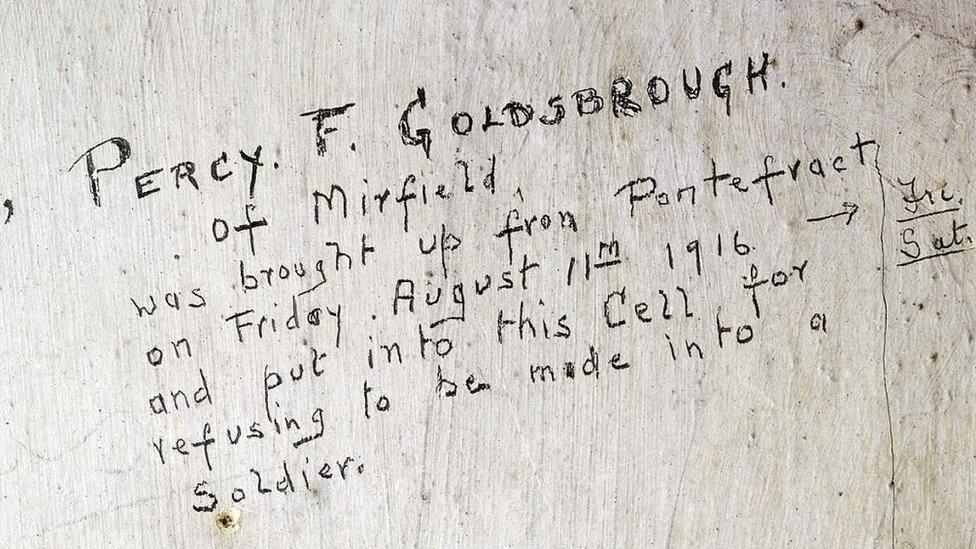 PERCY. F. GOLDSBROUGH.
of Mirfield,
was brought up from Pontefract →
on Friday. August 11th 1916
and put into this Cell for
refusing to be made into a
Soldier.
Fri.
Sat.